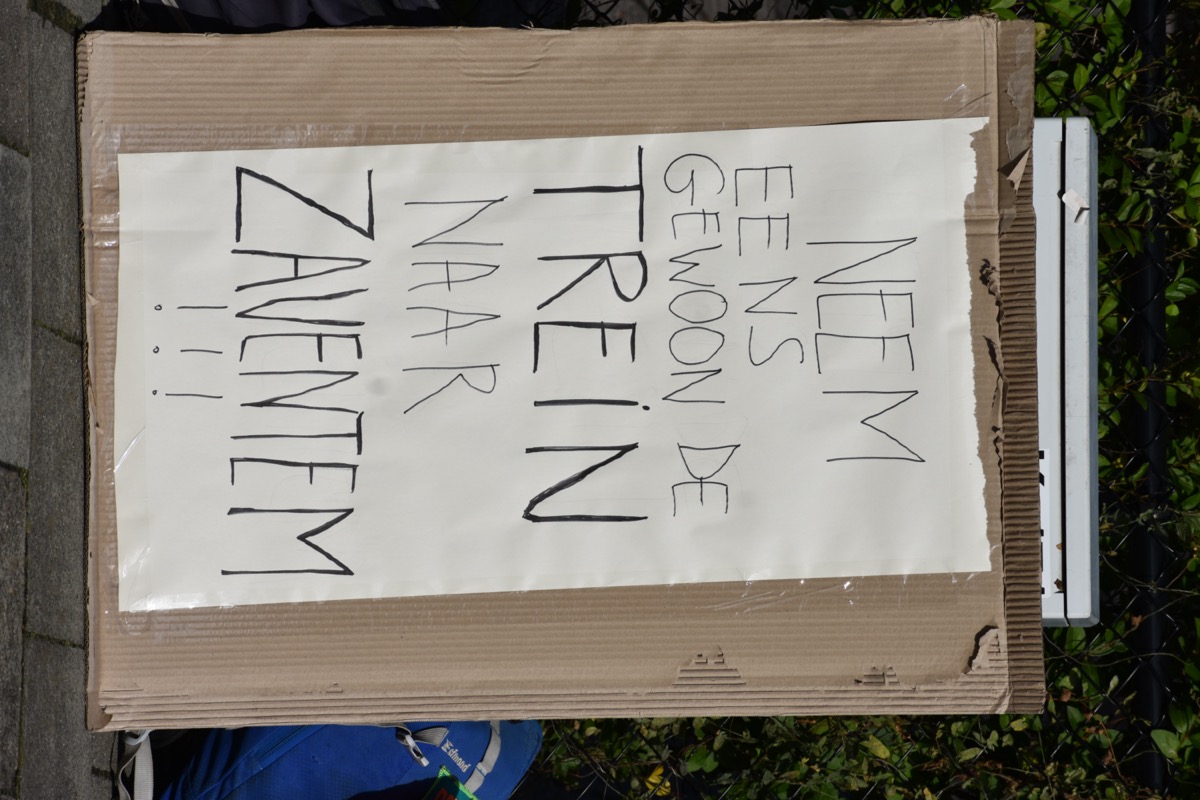 NEEM
EENS
GEWOON DE
TREiN
NAAR
ZAVENTEM
!!!
Edmold